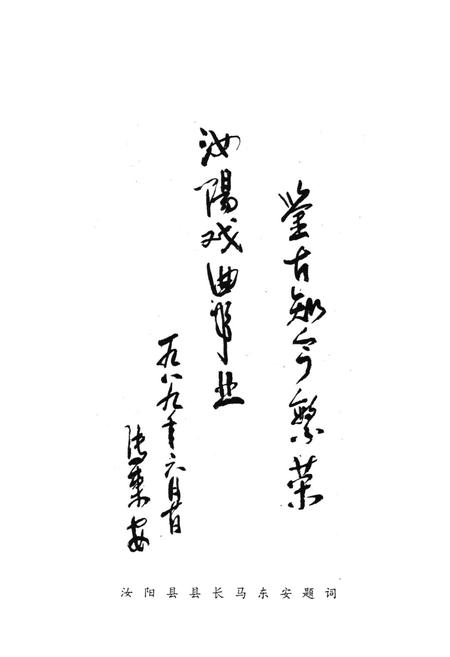 鉴古知今繁荣
汝陽戏曲事业
一九八九年六月廿日
马东安
汝阳县县长马东安题词